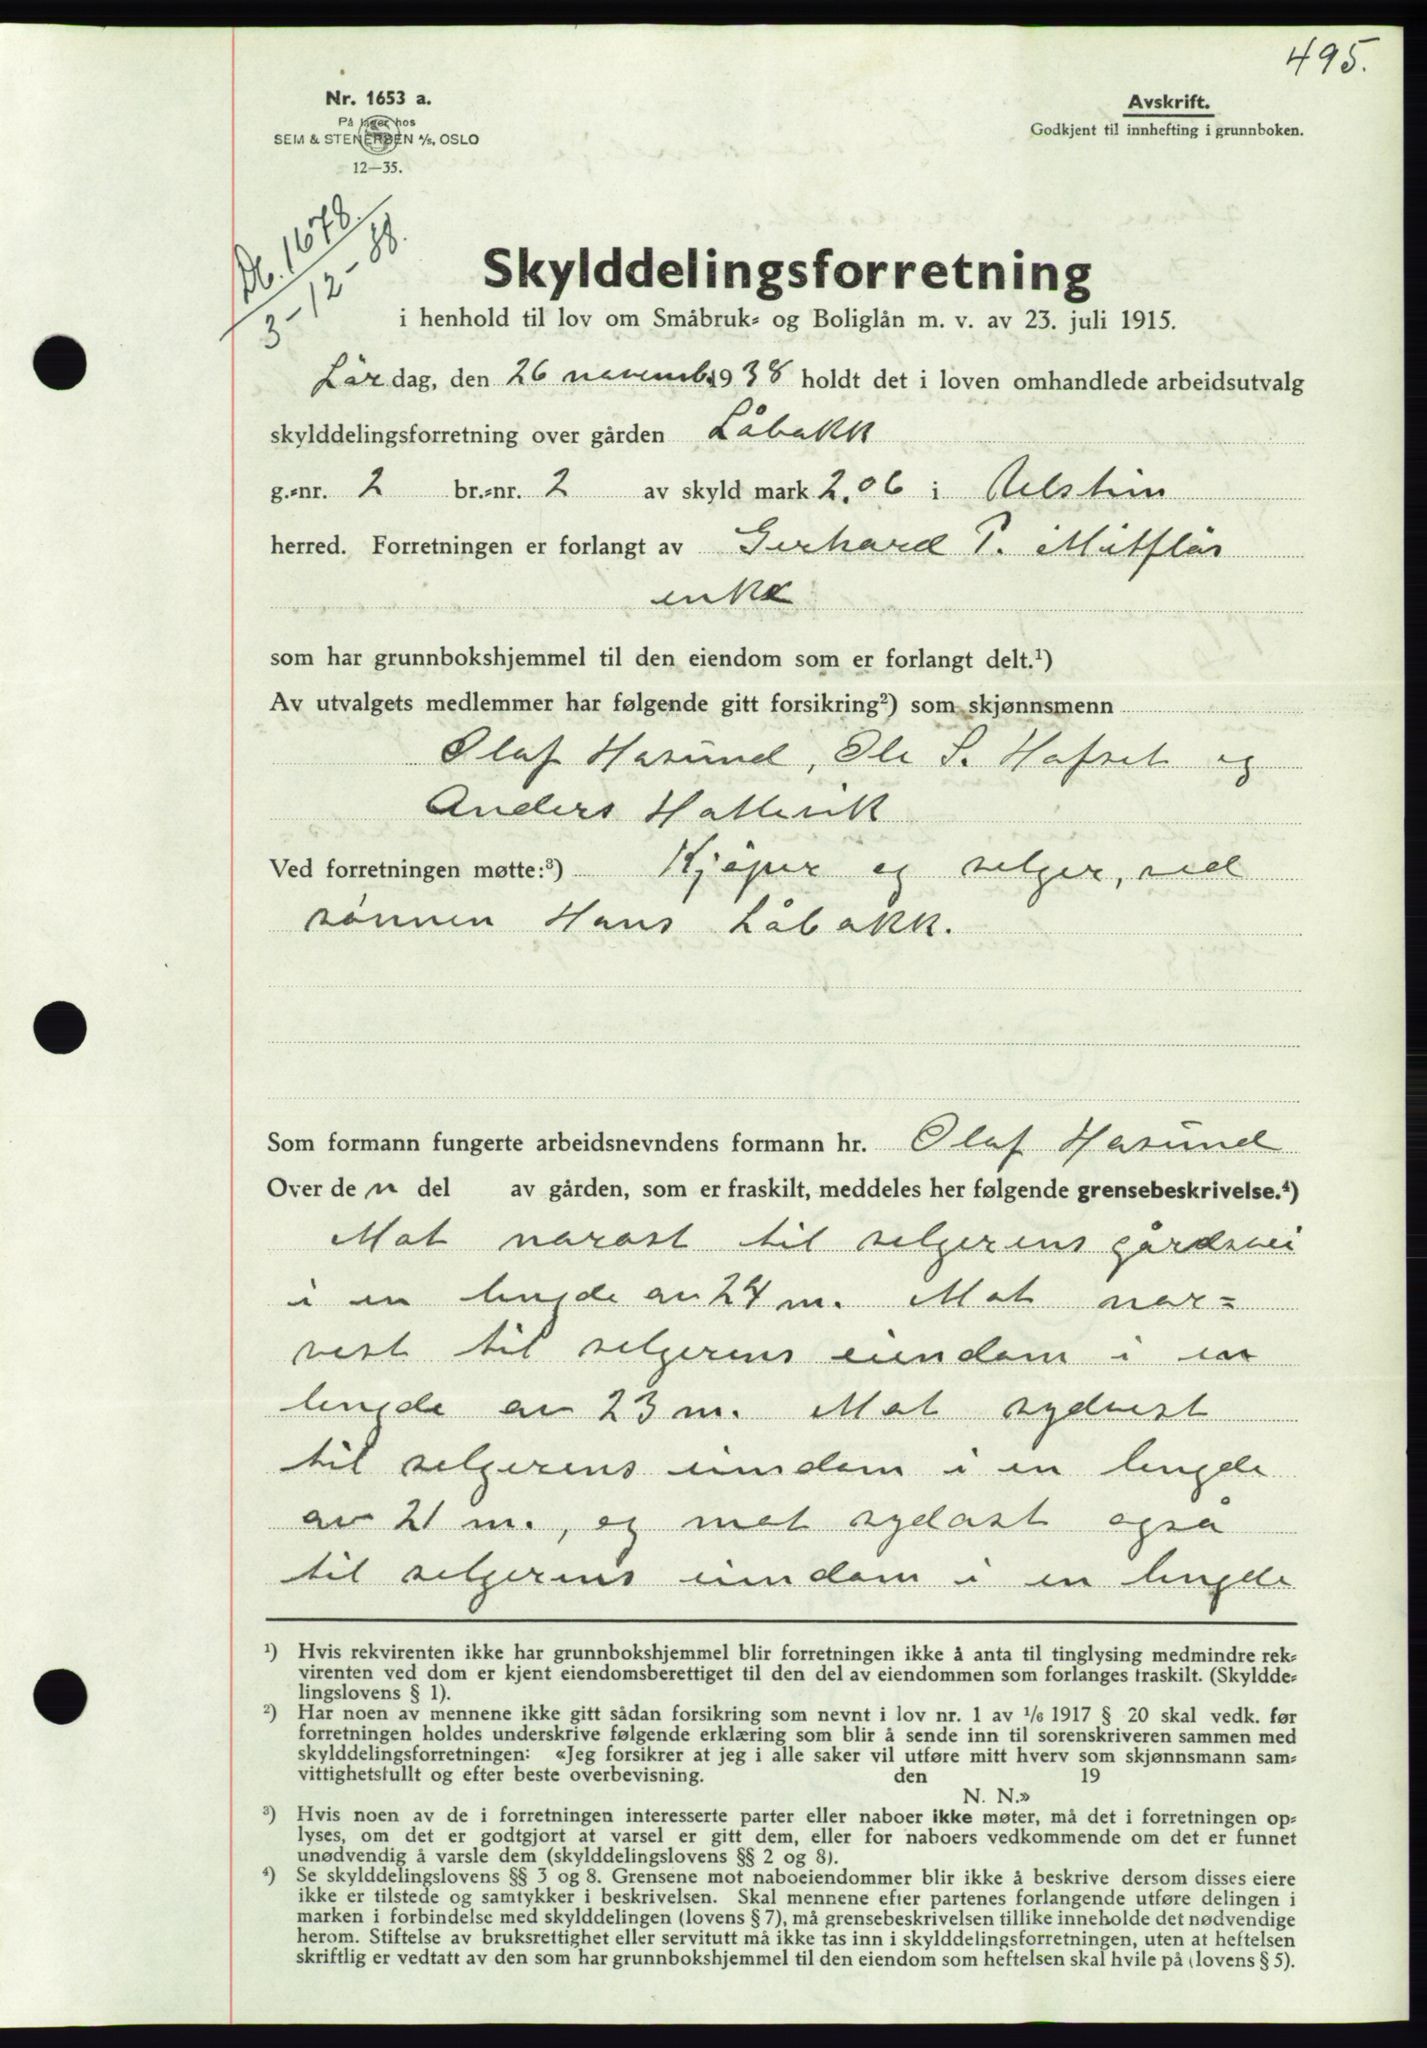 495.
Nr. 1653 a.
På lager hos
SEM & STENERSEN A/S, OSLO
12—35.
Avskrift.
Godkjent til innhefting i grunnboken.
Db. 1678.
3-12-38.
Skylddelingsforretning
i henhold til lov om Småbruk- og Boliglån m. v. av 23. juli 1915.
Lördag, den 26 novemb. 1938 holdt det i loven omhandlede arbeidsutvalg
skylddelingsforretning over gården Låbakk
g.-nr. 2 br.-nr. 2 av skyld mark 2.06 i Ulstein
herred. Forretningen er forlangt av Gerhard P. Mitflås
enke
som har grunnbokshjemmel til den eiendom som er forlangt delt.¹)
Av utvalgets medlemmer har følgende gitt forsikring²) som skjønnsmenn
Olaf Hasund, Ole S. Hafset og
Anders Hattevik
Ved forretningen møtte:³) Kjöper og selger, ved
sönnen Hans Låbakk.
Som formann fungerte arbeidsnevndens formann hr. Olaf Hasund
Over den del av gården, som er fraskilt, meddeles her følgende grensebeskrivelse.⁴)
Mot noraost til selgerens gårdsvei
i en lengde av 24 m. Mot nor=
vest til selgerens eiendom i en
lengde av 23 m. Mot sydvest
til selgerens eiendom i en lengde
av 21 m., og mot sydost også
til selgerens eiendom i en lengde
¹) Hvis rekvirenten ikke har grunnbokshjemmel blir forretningen ikke å anta til tinglysing medmindre rek-
virenten ved dom er kjent eiendomsberettiget til den del av eiendommen som forlanges fraskilt. (Skyldde-
lingslovens § 1).
²) Har noen av mennene ikke gitt sådan forsikring som nevnt i lov nr. 1 av 1/6 1917 § 20 skal vedk. før
forretningen holdes underskrive følgende erklæring som blir å sende inn til sorenskriveren sammen med
skylddelingsforretningen: «Jeg forsikrer at jeg i alle saker vil utføre mitt hverv som skjønnsmann sam-
vittighetsfullt og efter beste overbevisning. den 19
N. N.»
³) Hvis noen av de i forretningen interesserte parter eller naboer ikke møter, må det i forretningen op-
lyses, om det er godtgjort at varsel er gitt dem, eller for naboers vedkommende om det er funnet
unødvendig å varsle dem (skylddelingslovens §§ 2 og 8).
⁴) Se skylddelingslovens §§ 3 og 8. Grensene mot naboeiendommer blir ikke å beskrive dersom disses eiere
ikke er tilstede og samtykker i beskrivelsen. Skal mennene efter partenes forlangende utføre delingen i
marken i forbindelse med skylddelingen (lovens § 7), må grensebeskrivelsen tillike inneholde det nødvendige
herom. Stiftelse av bruksrettighet eller servitutt må ikke tas inn i skylddelingsforretningen, uten at heftelsen
skriftlig er vedtatt av den som har grunnbokshjemmel til den eiendom som heftelsen skal hvile på (lovens § 5).